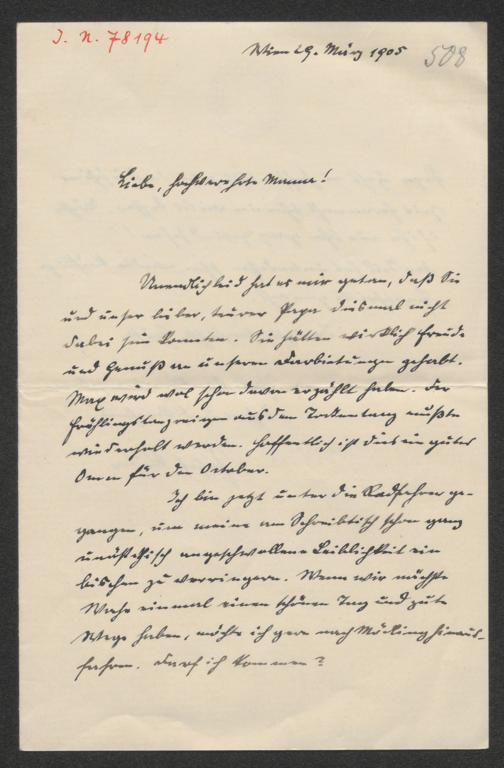 J. N. 78194
508
Wien 29. März 1905
Liebe, hochverehrte Mama!
Unendlich leid hat es mir getan, daß Sie
und unser lieber, teurer Papa diesmal nicht
dabei sein konnten. Sie hätten wirklich Freude
und Genuß an unseren Darbietungen gehabt.
Max wird wol schon davon erzählt haben. Der
Frühlingstanzreigen aus dem Totentanz mußte
wiederholt werden. Hoffentlich ist dies ein gutes
Omen für den October.
Ich bin jetzt unter die Radfahrer ge-
gangen, um meine am Schreibtisch schon ganz
unästhetisch angeschwollene Leiblichkeit ein
bischen zu verringern. Wenn wir nächste
Woche einmal einen schönen Tag und gute
Wege haben, möchte ich gern nach Möcking hinaus-
fahren. Darf ich kommen?